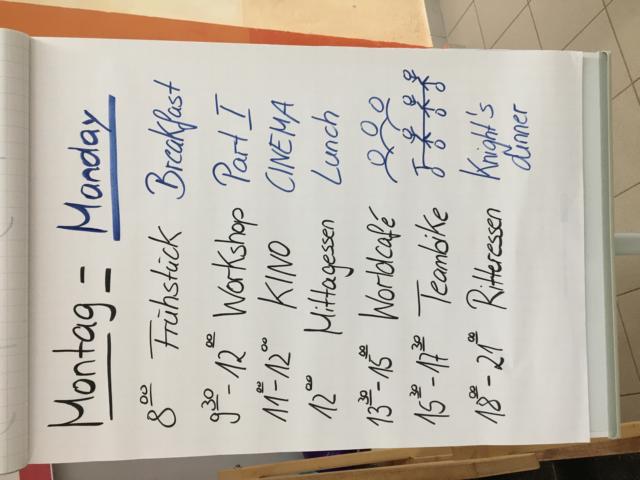 Montag = Manday
8⁰⁰ Frühstück Breakfast
9³⁰ - 12⁰⁰ Workshop Part I
11⁰⁰ - 12⁰⁰ KINO CINEMA
12⁰⁰ Mittagessen Lunch
13³⁰ - 15⁰⁰ Worldcafé
15³⁰ - 17³⁰ Teambike
18⁰⁰ - 21⁰⁰ Ritteressen Knight's
dinner